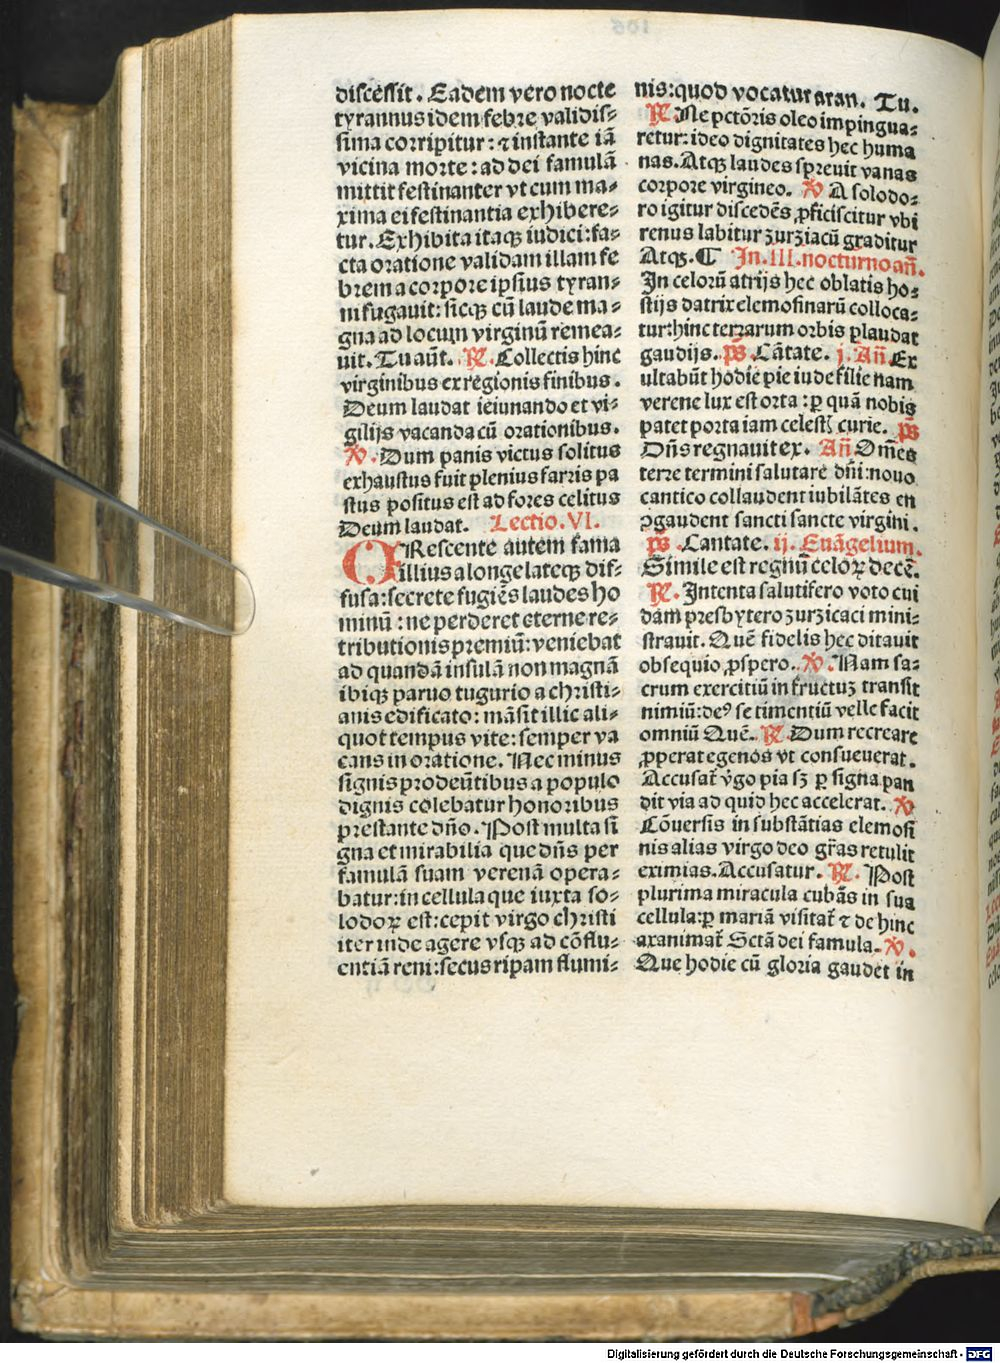 discessit. Eadem vero nocte
tyrannus idem febre validis⸗
sima corripitur: ⁊ instante iã
vicina morte: ad dei famulã
mittit festinanter vt cum ma⸗
xima ei festinantia exhibere⸗
tur. Exhibita itaqꝫ iudici: fa⸗
cta oratione validam illam fe
brem a corpore ipsius tyran⸗
ni fugauit: sicqꝫ cũ laude ma⸗
gna ad locum virginũ remea⸗
uit. Tu aũt. R̃. Collectis hinc
virginibus ex regionis finibus.
Deum laudat ieiunando et vi⸗
gilijs vacanda cũ orationibus.
V̾. Dum panis victus solitus
exhaustus fuit plenius farris pa
stus positus est ad fores celitus
Deum laudat. Lectio. VI.
CRescente autem fama
illius a longe lateqꝫ dif⸗
fusa: secrete fugiẽs laudes ho
minũ: ne perderet eterne re⸗
tributionis premiũ: veniebat
ad quandã insulã non magnã
ibiqꝫ paruo tugurio a christi⸗
anis edificato: mãsit illic ali⸗
quot tempus vite: semper va
cans in oratione. Nec minus
signis prodeũtibus a populo
dignis colebatur honoribus
prestante dño. Post multa si
gna et mirabilia que dñs per
famulã suam verenã opera⸗
batur: in cellula que iuxta so⸗
lodoꝝ est: cepit virgo christi
iter inde agere vsqꝫ ad cõflu⸗
entiã reni: secus ripam flumi⸗
nis: quod vocatur aran. Tu.
R̃. Ne pctõris oleo impingua⸗
retur: ideo dignitates hec huma
nas. Atqꝫ laudes spreuit vanas
corpore virgineo. V̾ A solodo⸗
ro igitur discedẽs ꝓficiscitur vbi
renus labitur ʒurʒiacũ graditur
Atqꝫ. ¶ In. III. nocturno añ.
In celorũ atrijs hec oblatis ho⸗
stijs datrix elemosinarũ colloca⸗
tur: hinc terrarum orbis plaudat
gaudijs. p̃s. Cãtate. j. Añ Ex
ultabũt hodie pie iude filie nam
verene lux est orta: ꝑ quã nobis
patet porta iam celest curie. p̃s
Dñs regnauit ex. Añ Om̃es
terre termini salutare dñi: nouo
cantico collaudent iubilãtes en
ꝯgaudent sancti sancte virgini.
p̃s. Cantate. ij. Euãgelium.
Simile est regnũ celoꝝ decẽ.
R̃. Intenta salutifero voto cui
dam presbytero ʒurʒicaci mini⸗
strauit. Quẽ fidelis hec ditauit
obsequio ꝓspero. V̾. Nam sa⸗
crum exercitiũ in fructuʒ transit
nimiũ: deꝰ se timentiũ velle facit
omniũ Quẽ. R̃. Dum recreare
ꝓperat egenos vt consueuerat.
Accusat̃ vgo pia sʒ ꝑ signa pan
dit via ad quid hec accelerat. V̾
Cõuersis in substãtias elemosi
nis alias virgo deo gr̃as retulit
eximias. Accusatur. R̃. Post
plurima miracula cubãs in sua
cellula: ꝑ mariã visitat̃ ⁊ de hinc
axanimat̃ Sctã dei famula. V̾.
Que hodie cũ gloria gaudet in
Digitalisierung gefördert durch die Deutsche Forschungsgemeinschaft - DFG